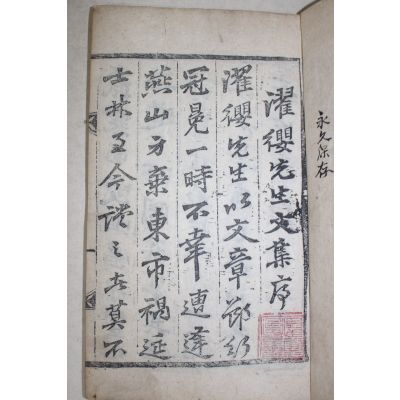 永久保存
濯纓先生文集序
濯纓先生以文章節行
冠冕一時不幸遭逢
燕山方棄東市禍延
士林至今談之者莫不